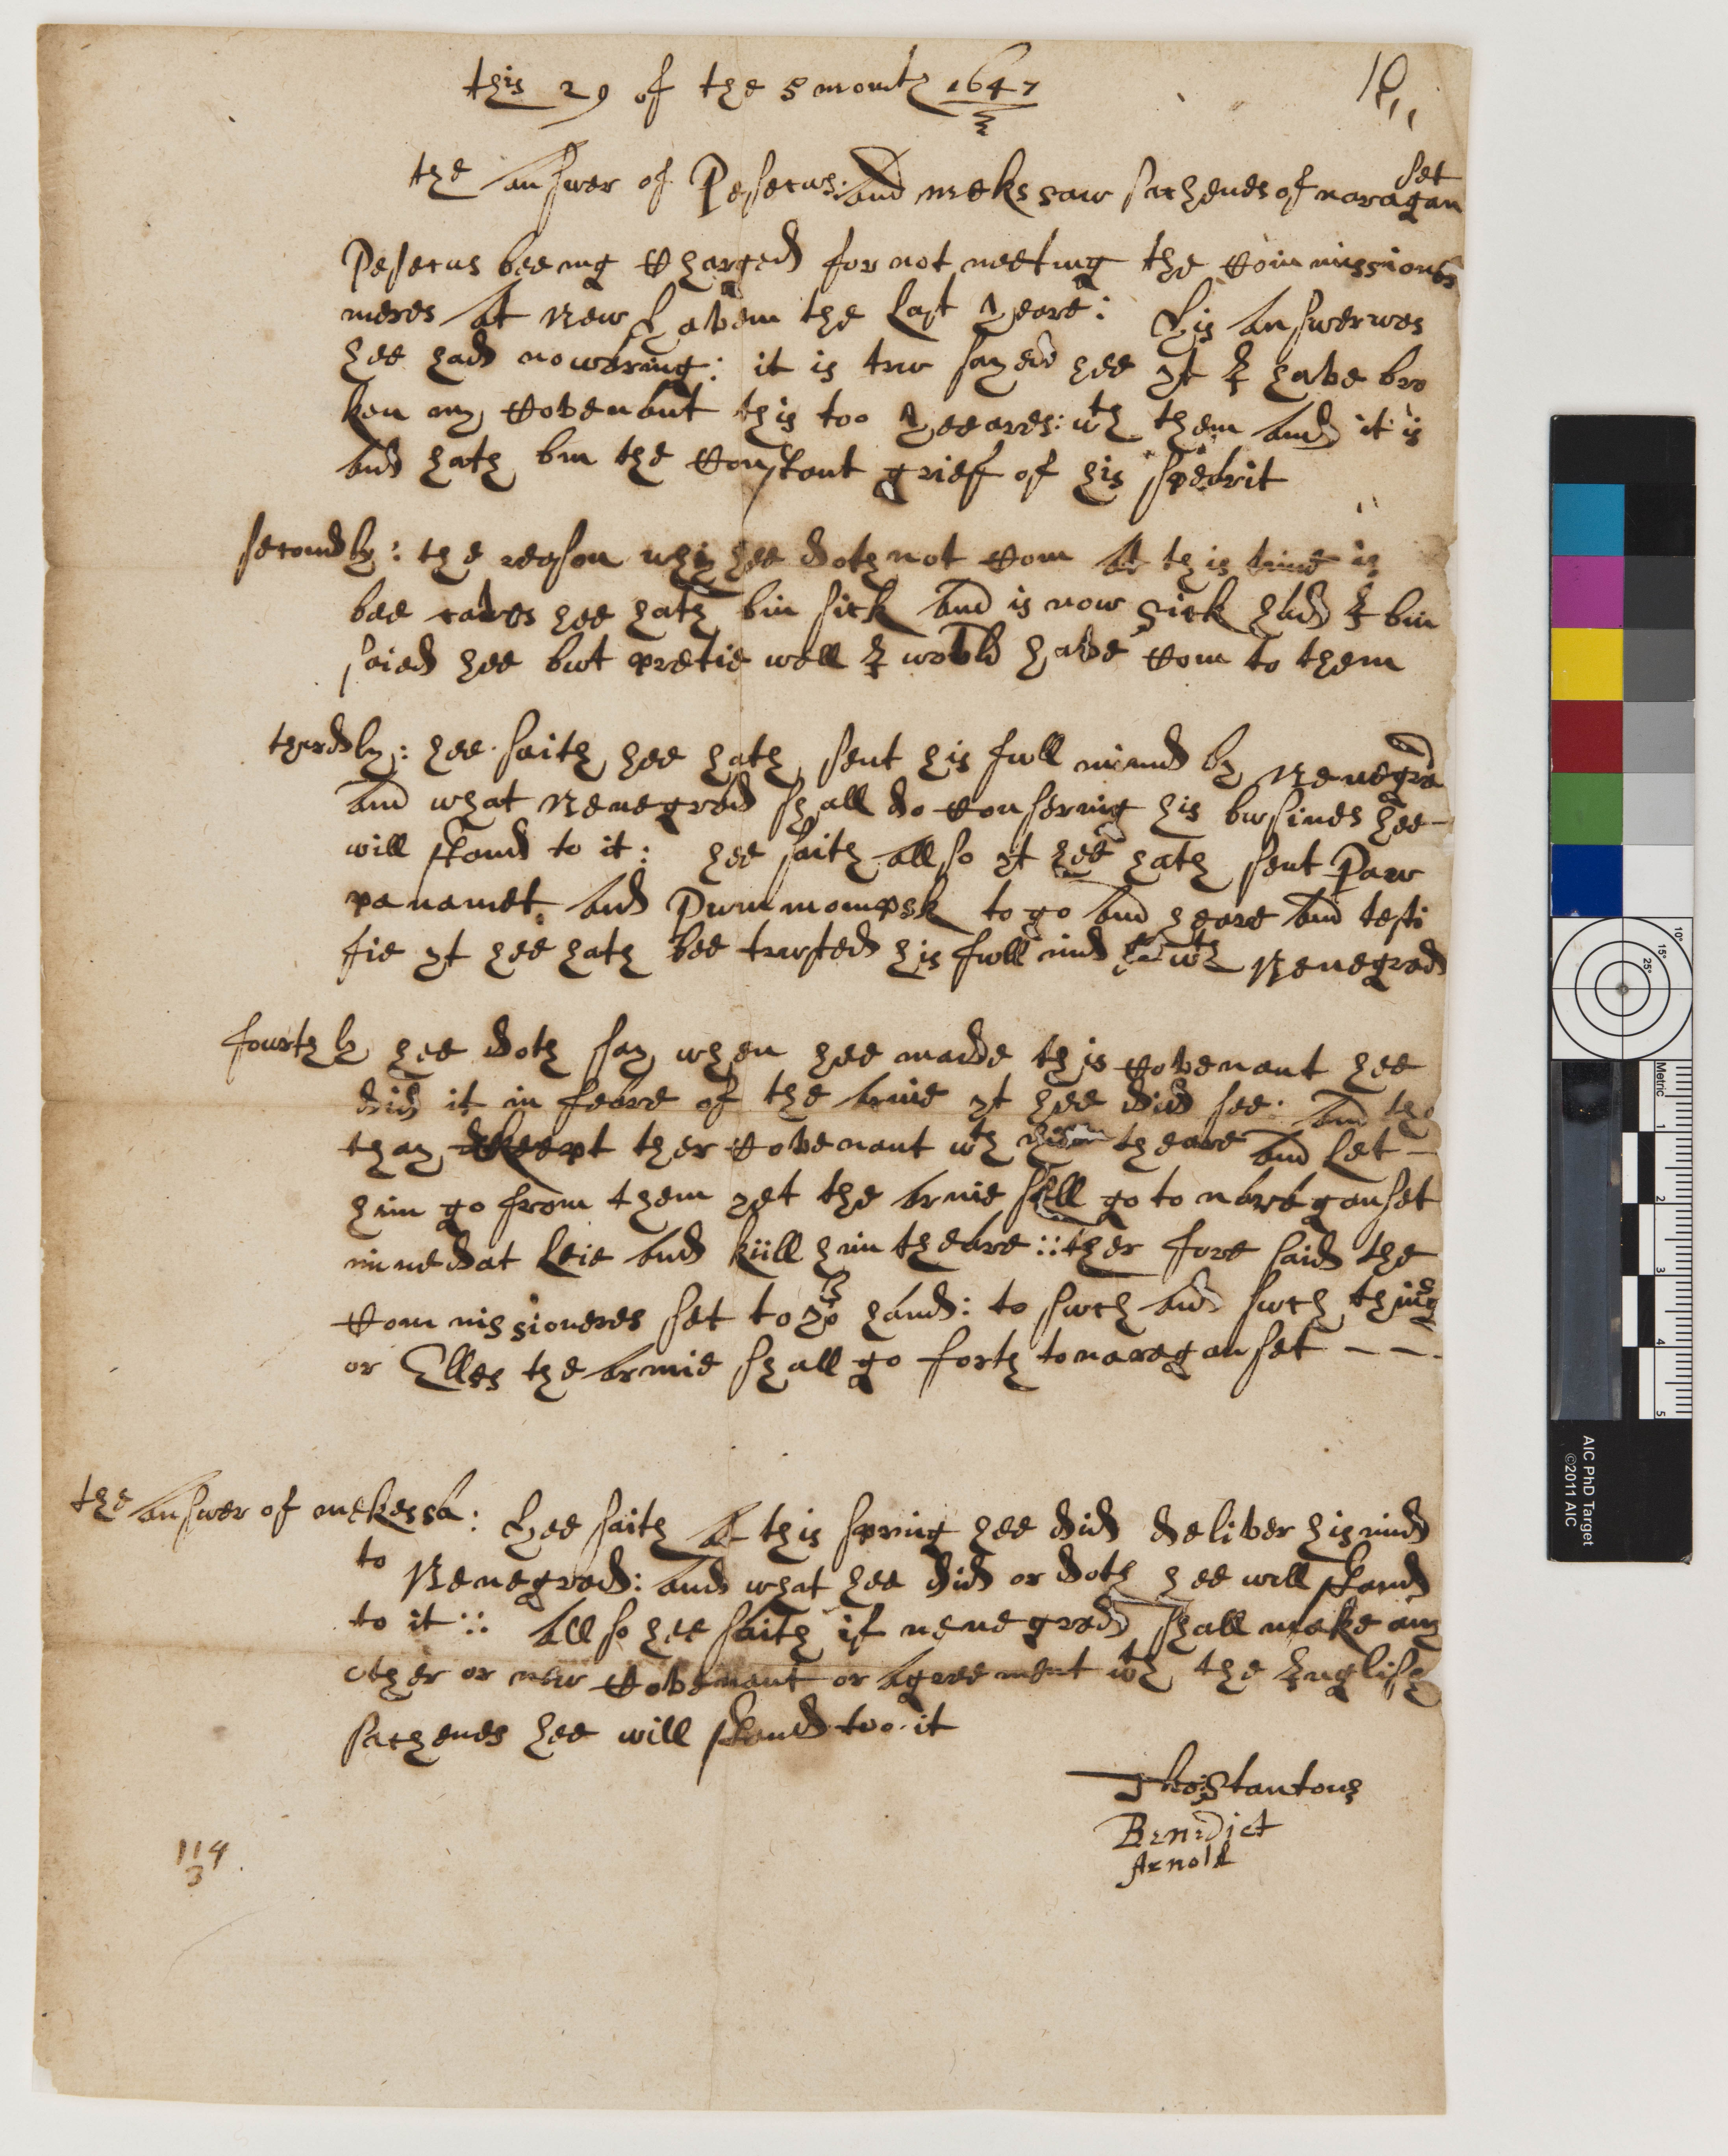 this 29 of the 5 month 1647
the answer of Pesecus: and mekssaw sachenes of naragan
set
Pesecus beeing Charged for not meeting the Commissiones
meres at new haven the last yeare: his answerwas
hee had nowarning: it is trw sayed hee yt I have bro
ken my Covenant this too yeeares: wth them and it is
and hath bin the Constant grief of his spearit
secondly: the reason why hee doth not Com at this time is
bee caves hee hath bin sick and is now sick had I bin
saied hee bwt pretie well I would have Com to them
therdly: hee saith hee hath sent his fwll minnd by Nenegrad
and what Nenegrad shall do Consering his bwsines hee-
will stand to it: hee saith allso yt hee hath sent Paw
panamet and Pwmmompsk to go and heare and testi
fie yt hee hath bee trwsted his fwll mind wth Nenegrad
fourthly hee doth say when hee madde this Covenant hee
did it in feare of the armie yt hee did see. and tho
thay keept ther Covenant wth him theare and let -
him go from them yet the armie shll go to nareganset
immedat leie and kiill him theare :: ther fore said the
Commissioneres set to yor hand: to swch and swch things
or Elles the armie shall go forth tonareganset - - -
the answer of mekessa: hee saith at this spring hee did deliver hismind
to Nenegrad: and what hee did or doth hee will stand
to it :: allso hee saith if nenegrad shall make any
other or new Covenant or agreement wth the English
sachenes hee will stand too it
Tho: Stanton
Benedict
Arnold
114
3